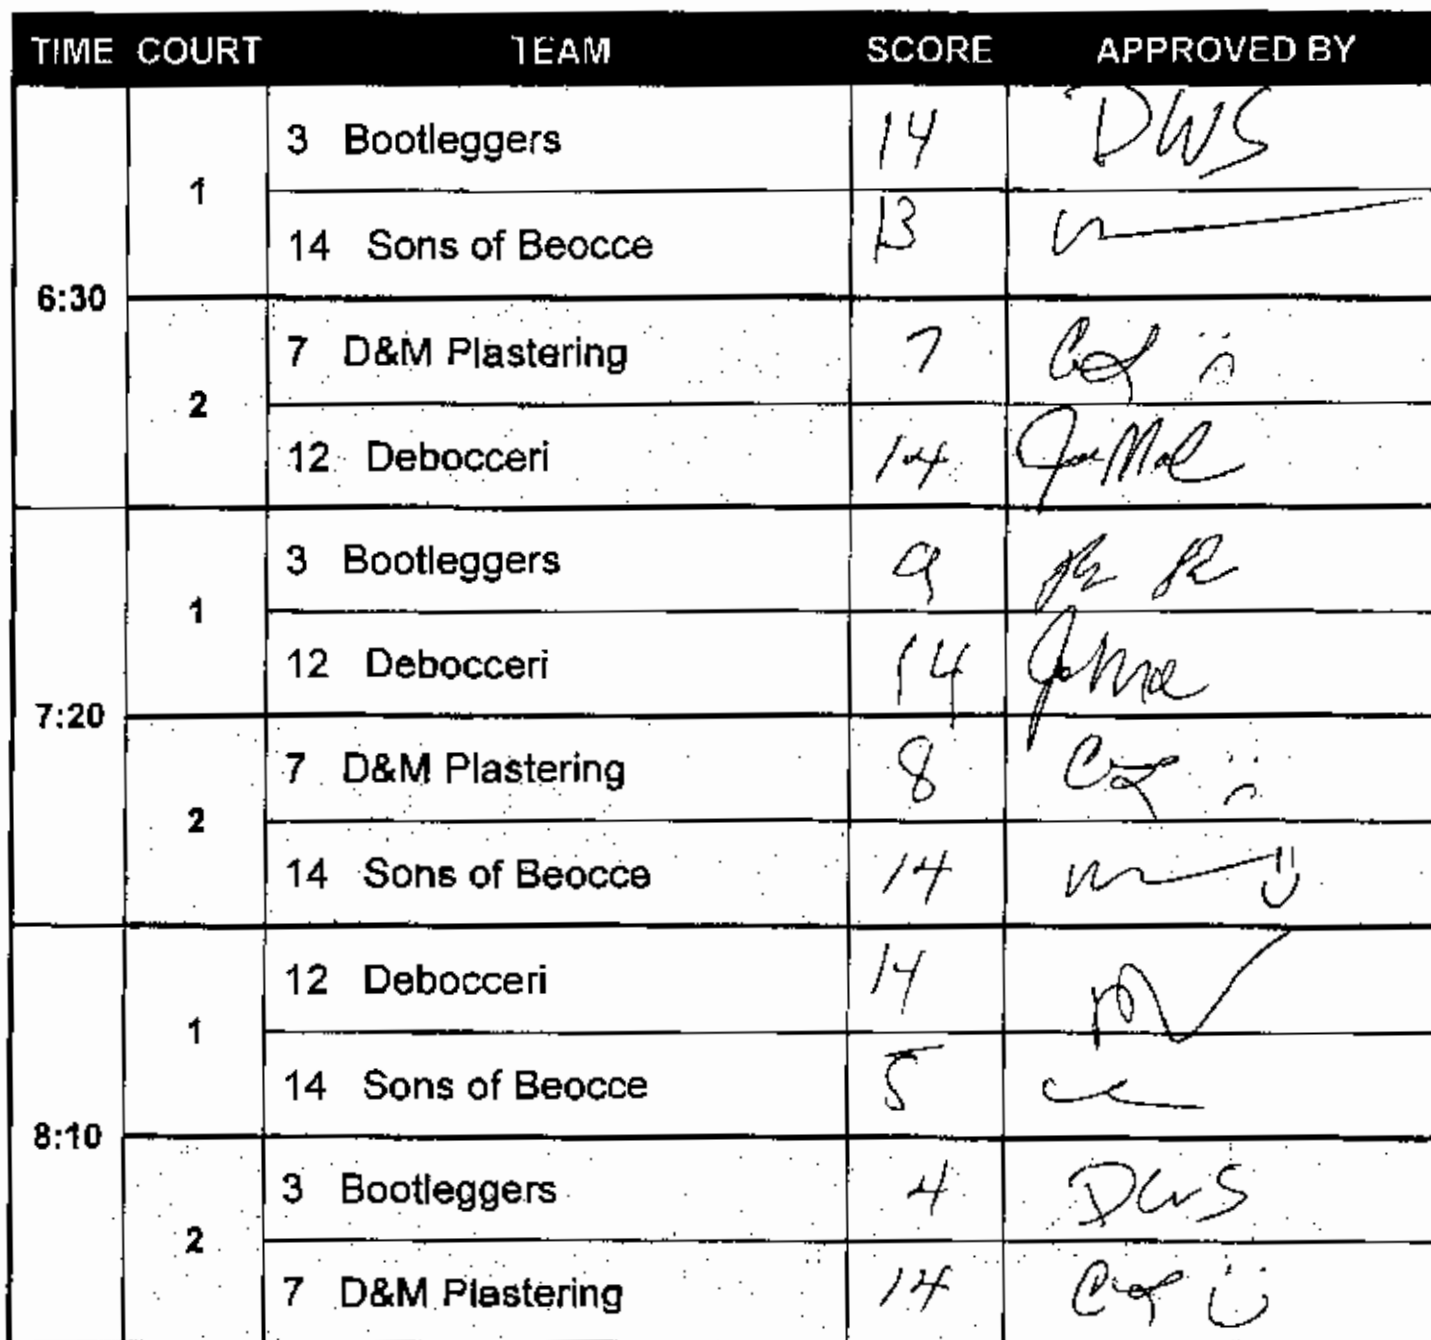 TIME COURT TEAM SCORE APPROVED BY
6:30
1
3 Bootleggers 14 DWS
14 Sons of Beocce 13
2
7 D&M Plastering 7
12 Debocceri 14
7:20
1
3 Bootleggers 9
12 Debocceri 14
2
7 D&M Plastering 8
14 Sons of Beocce 14
8:10
1
12 Debocceri 14
14 Sons of Beocce 5
2
3 Bootleggers 4 DWS
7 D&M Plastering 14